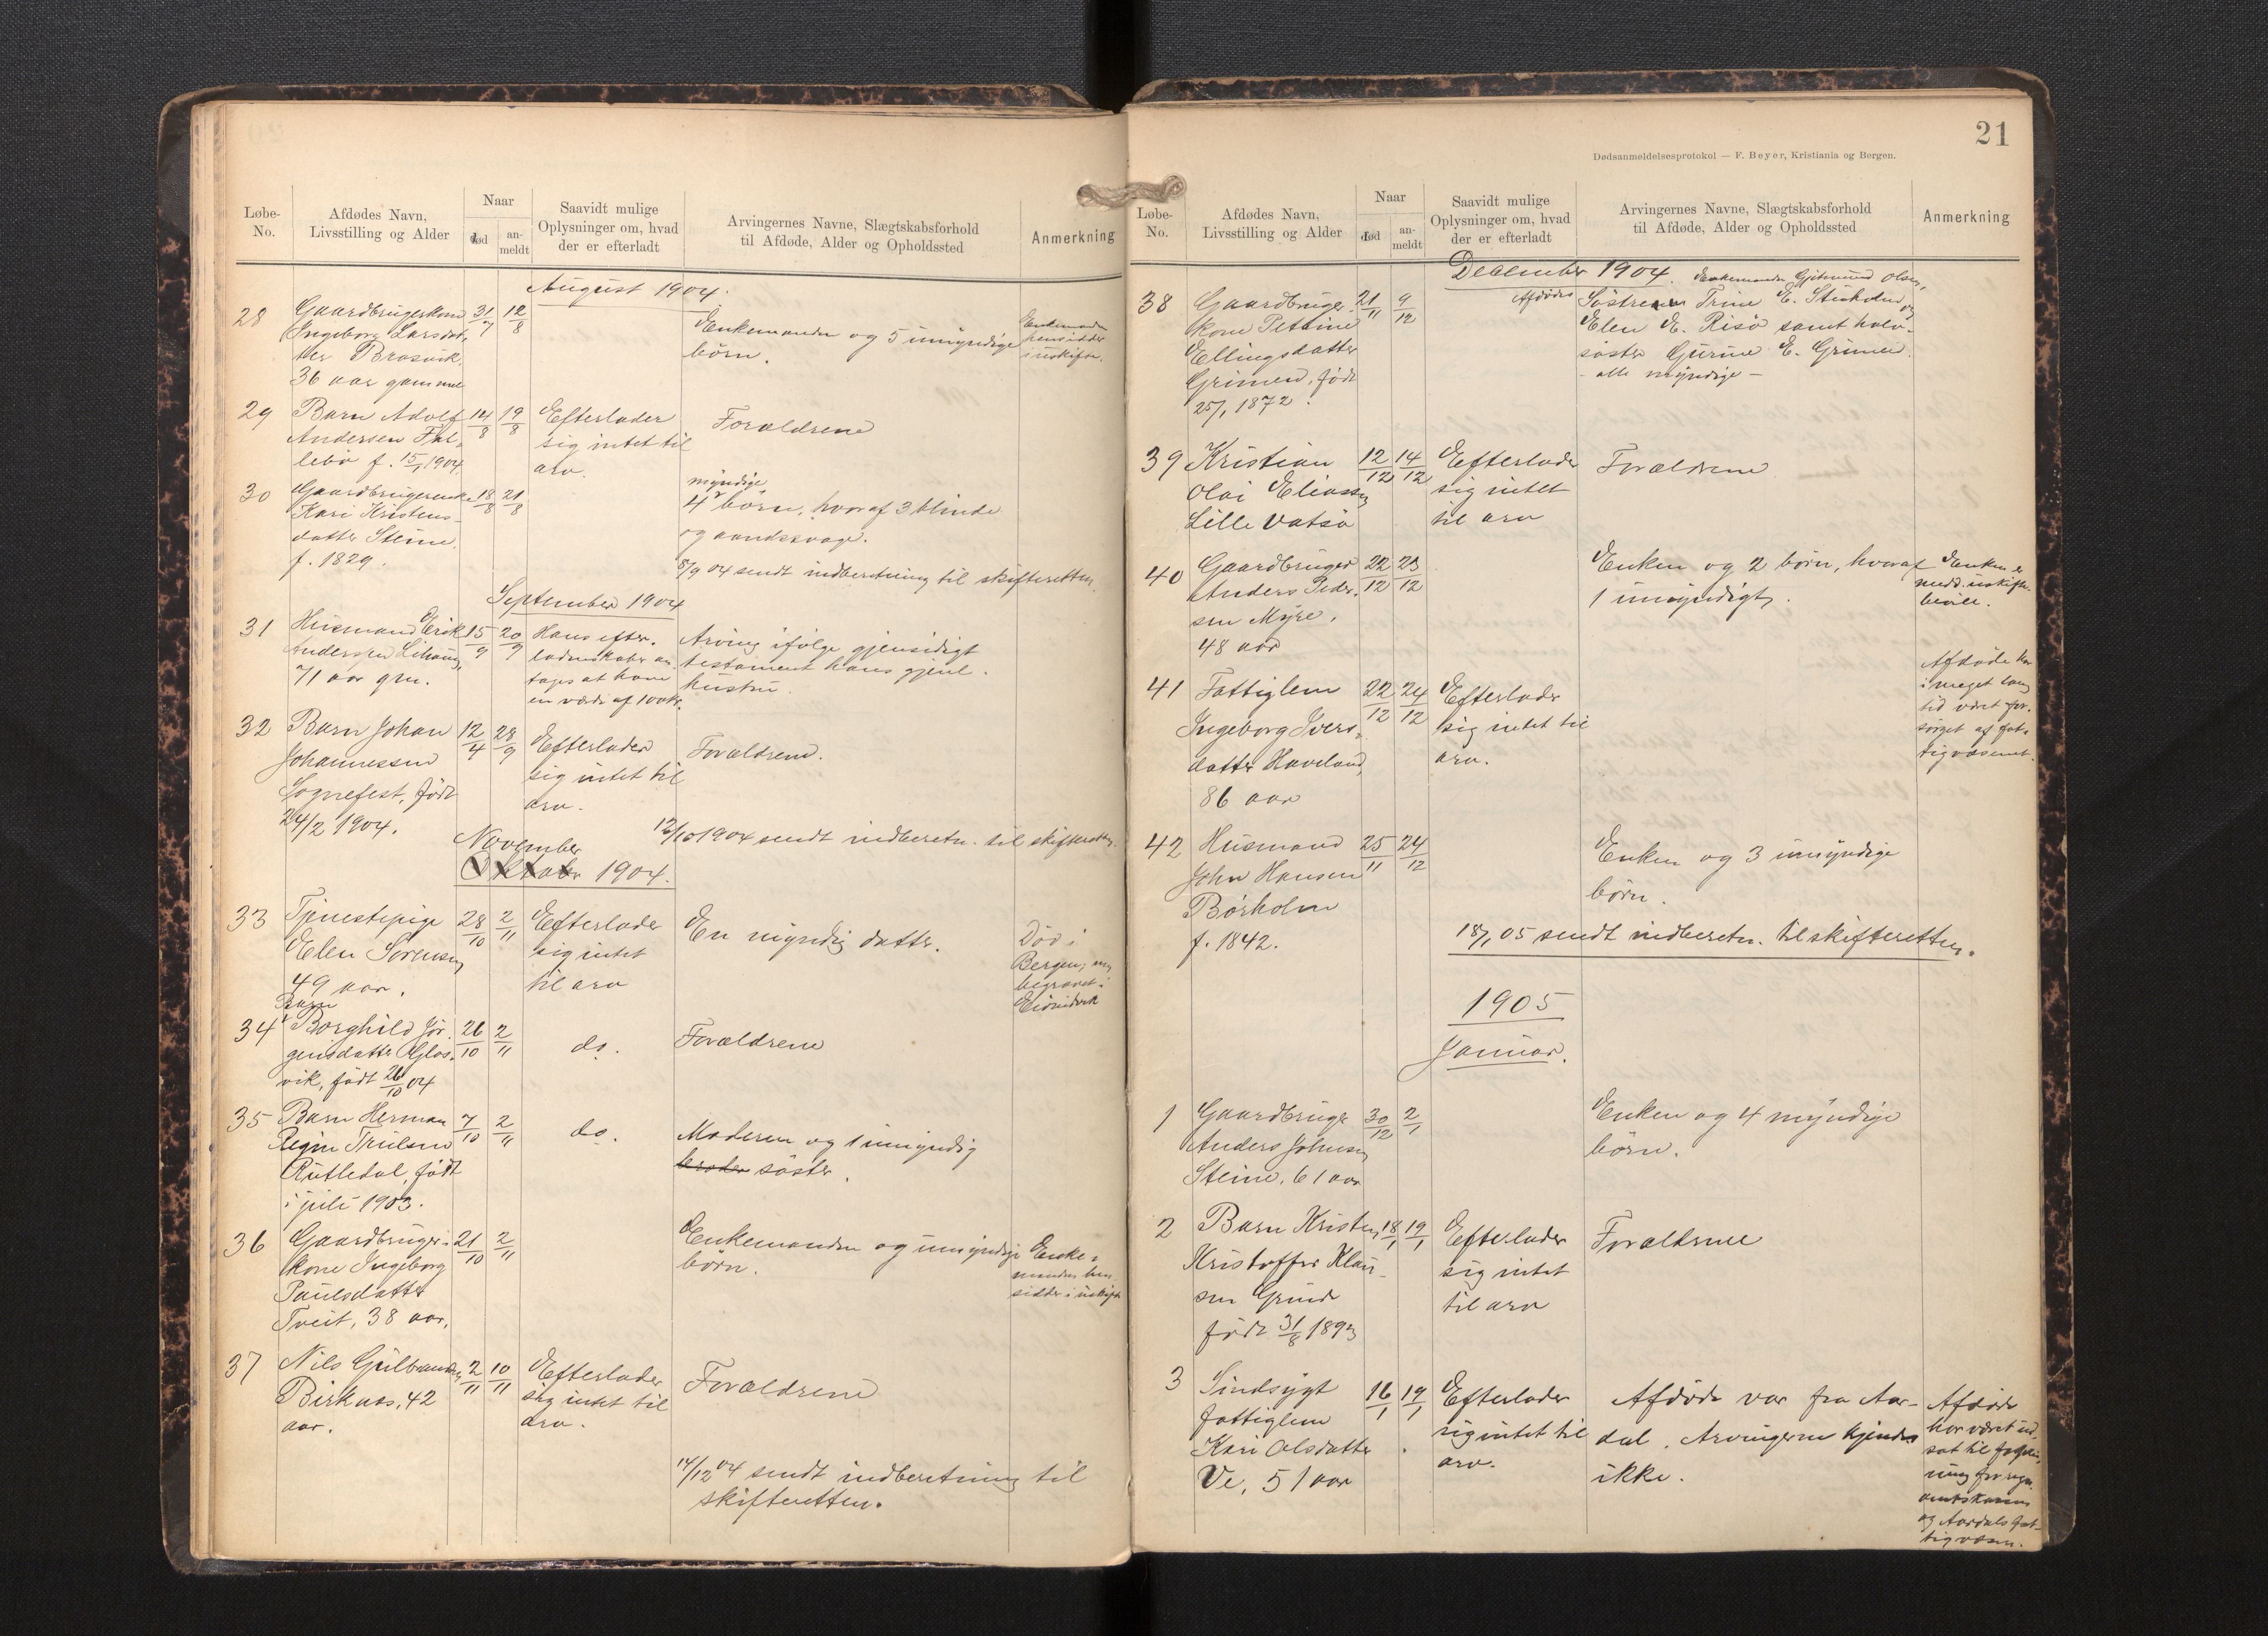 Løbe-
No.
Afdødes Navn,
Livsstilling og Alder
Naar
død
an-
meldt
Saavidt mulige
Oplysninger om, hvad
der er efterladt
Arvingernes Navne, Slægtskabsforhold
til Afdøde, Alder og Opholdssted
Anmerkning
August 1904.
28
Gaardbrugerkone
Ingeborg Larsdat-
ter Brosvik
36 aar gammel
31/7
12/8
Enkemanden og 5 umyndige
børn.
Enkemanden
hensidder
i uskifte.
29
Barn Adolf
Andersen Fal-
lebø f. 15/1 1904.
14/8
19/8
Efterlader
sig intet til
arv.
Forældrene
30
Gaardbrugerenke
Kari Kristens-
datter Steine.
f. 1829.
18/8
21/8
myndige
4 børn, hvoraf 3 blinde
og aandssvage.
8/9 04 sendt indberetning til skifteretten.
September 1904
31
Husmand Erik
Anderssen Lihaug,
71 aar gm.
15/9
20/9
Hans efter-
ladenskaber an-
tages at have
en værdi af 100 kr.
Arving ifølge gjensidigt
testament hans gjenl.
hustru.
32
Barn Johan
Johannessen
Sognefest, født
24/2 1904.
12/4
28/9
Efterlader
sig intet til
arv.
Forældrene.
12/10 1904 sendt indberetn. til skifteretten.
November
Oktober 1904.
33
Tjenestepige
Elen Sørensen
49 aar.
28/10
2/11
Efterlader
sig intet
til arv
En myndig datter.
Død i
Bergen;
begravet i
Eivindvik
34
Barn
Borghild Jør-
gensdatter Glos-
vik, født 26/10 04
26/10
2/11
do.
Forældrene
35
Barn Herman
Regin Trulsen
Rutledal, født
i juli 1903.
7/10
2/11
do.
Moderen og 1 umyndig
broder søster.
36
Gaardbruger-
kone Ingeborg
Paulsdatter
Tveit, 38 aar.
21/10
2/11
Enkemanden og umyndige
børn.
Enke-
manden hen-
sidder i uskifte
37
Nils Gulbrandsen
Birknes, 42
aar.
2/11
10/11
Efterlader
sig intet til
arv.
Forældrene
14/12 04 sendt indberetning til
skifteretten.
21
Dødsanmeldelsesprotokol — F. Beyer, Kristiania og Bergen.
Løbe-
No.
Afdødes Navn,
Livsstilling og Alder
Naar
død
an-
meldt
Saavidt mulige
Oplysninger om, hvad
der er efterladt
Arvingernes Navne, Slægtskabsforhold
til Afdøde, Alder og Opholdssted
Anmerkning
December 1904.
38
Gaardbruger-
kone Petrine
Ellingsdatter
Grimen, født
25/1 1872.
21/11
9/12
Enkemanden Gjetmund Olsen,
Afdødes Søstrene Trine E. Stusholmen og
Elen E. Risø samt halv-
søster Gurine E. Grimen.
- alle myndige -
39
Kristian
Olai Eliassen
Lille Vatsø
12/12
14/12
Efterlader
sig intet
til arv
Forældrene
40
Gaardbruger
Anders Peder-
sen Myre,
48 aar
22/12
23/12
Enken og 2 børn, hvoraf
1 umyndigt.
Enken er
medd. uskifte-
bevill.
41
Fattiglem
Ingeborg Ivers-
datter Haveland,
86 aar
22/12
24/12
Efterlader
sig intet til
arv.
Afdøde har
i meget lang
tid været for-
sørget af fat-
tigvæsenet.
42
Husmand
John Hansen
Børholm
f. 1842.
25/11
24/12
Enken og 3 umyndige
børn.
18/1 05 sendt indberetn. til skifteretten.
1905
Januar.
1
Gaardbruger
Anders Johnsen
Steine, 61 aar
30/12
2/1
Enken og 4 myndige
børn.
2
Barn Kristen
Kristoffer Klau-
sen Grinde
født 31/8 1893
18/1
19/1
Efterlader
sig intet
til arv
Forældrene
3
Sindsygt
fattiglem
Kari Olsdatter
Ve, 51 aar
16/1
19/1
Efterlader
sig intet til
arv.
Afdøde var fra Aar-
dal. Arvingerne kjendes
ikke.
Afdøde
har været ud-
sat til forplei-
ning for regn.
amtskassen
og Aardals fat-
tigvæsen.